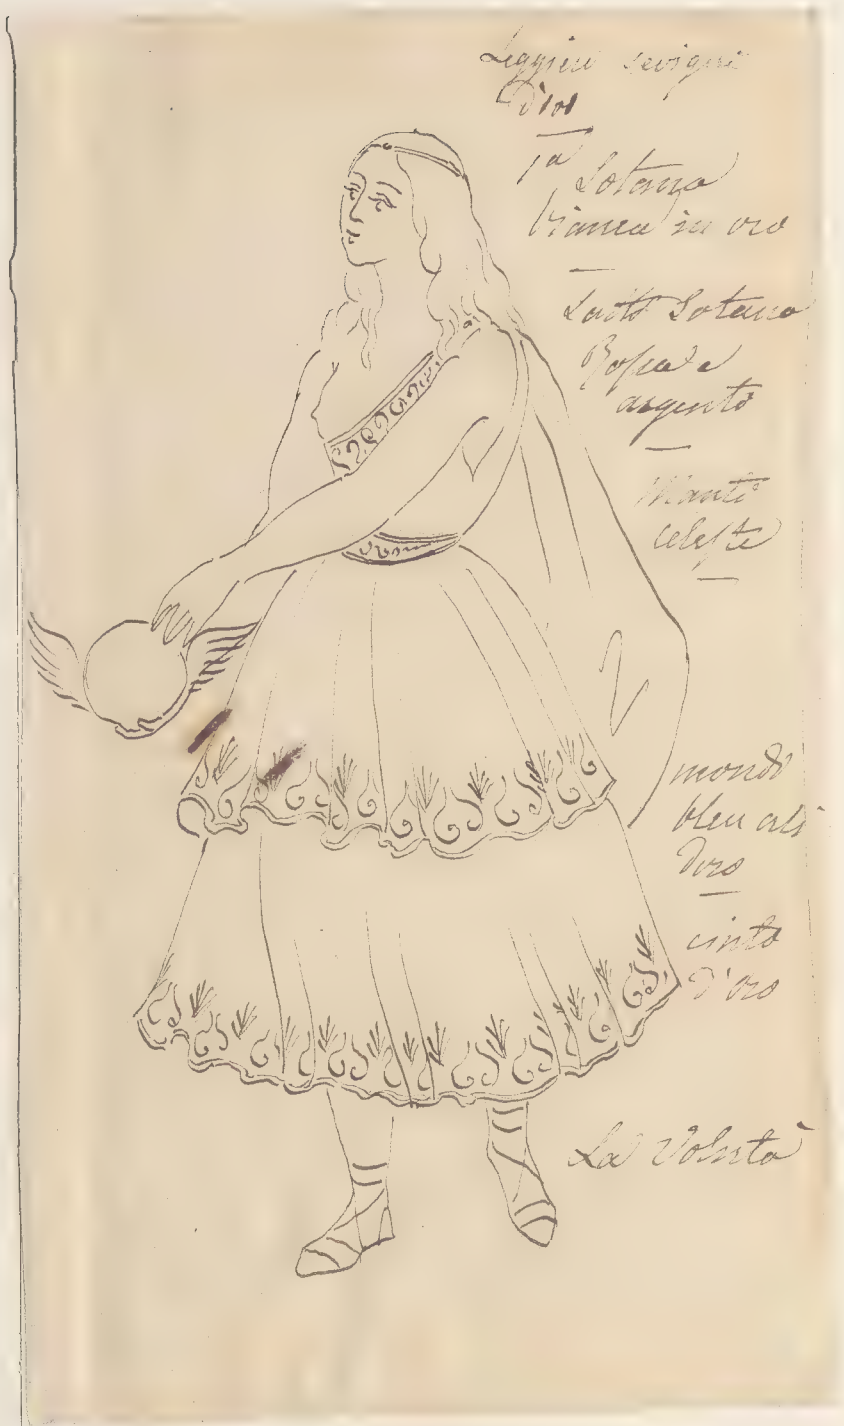 Leggieri sevigné
d'or
1a Sotana
bianca in oro
Sotana
Rosa e
argento
Manto
celeste
mondo
bleu ali
d'oro
cinto
d'oro
La Volontà